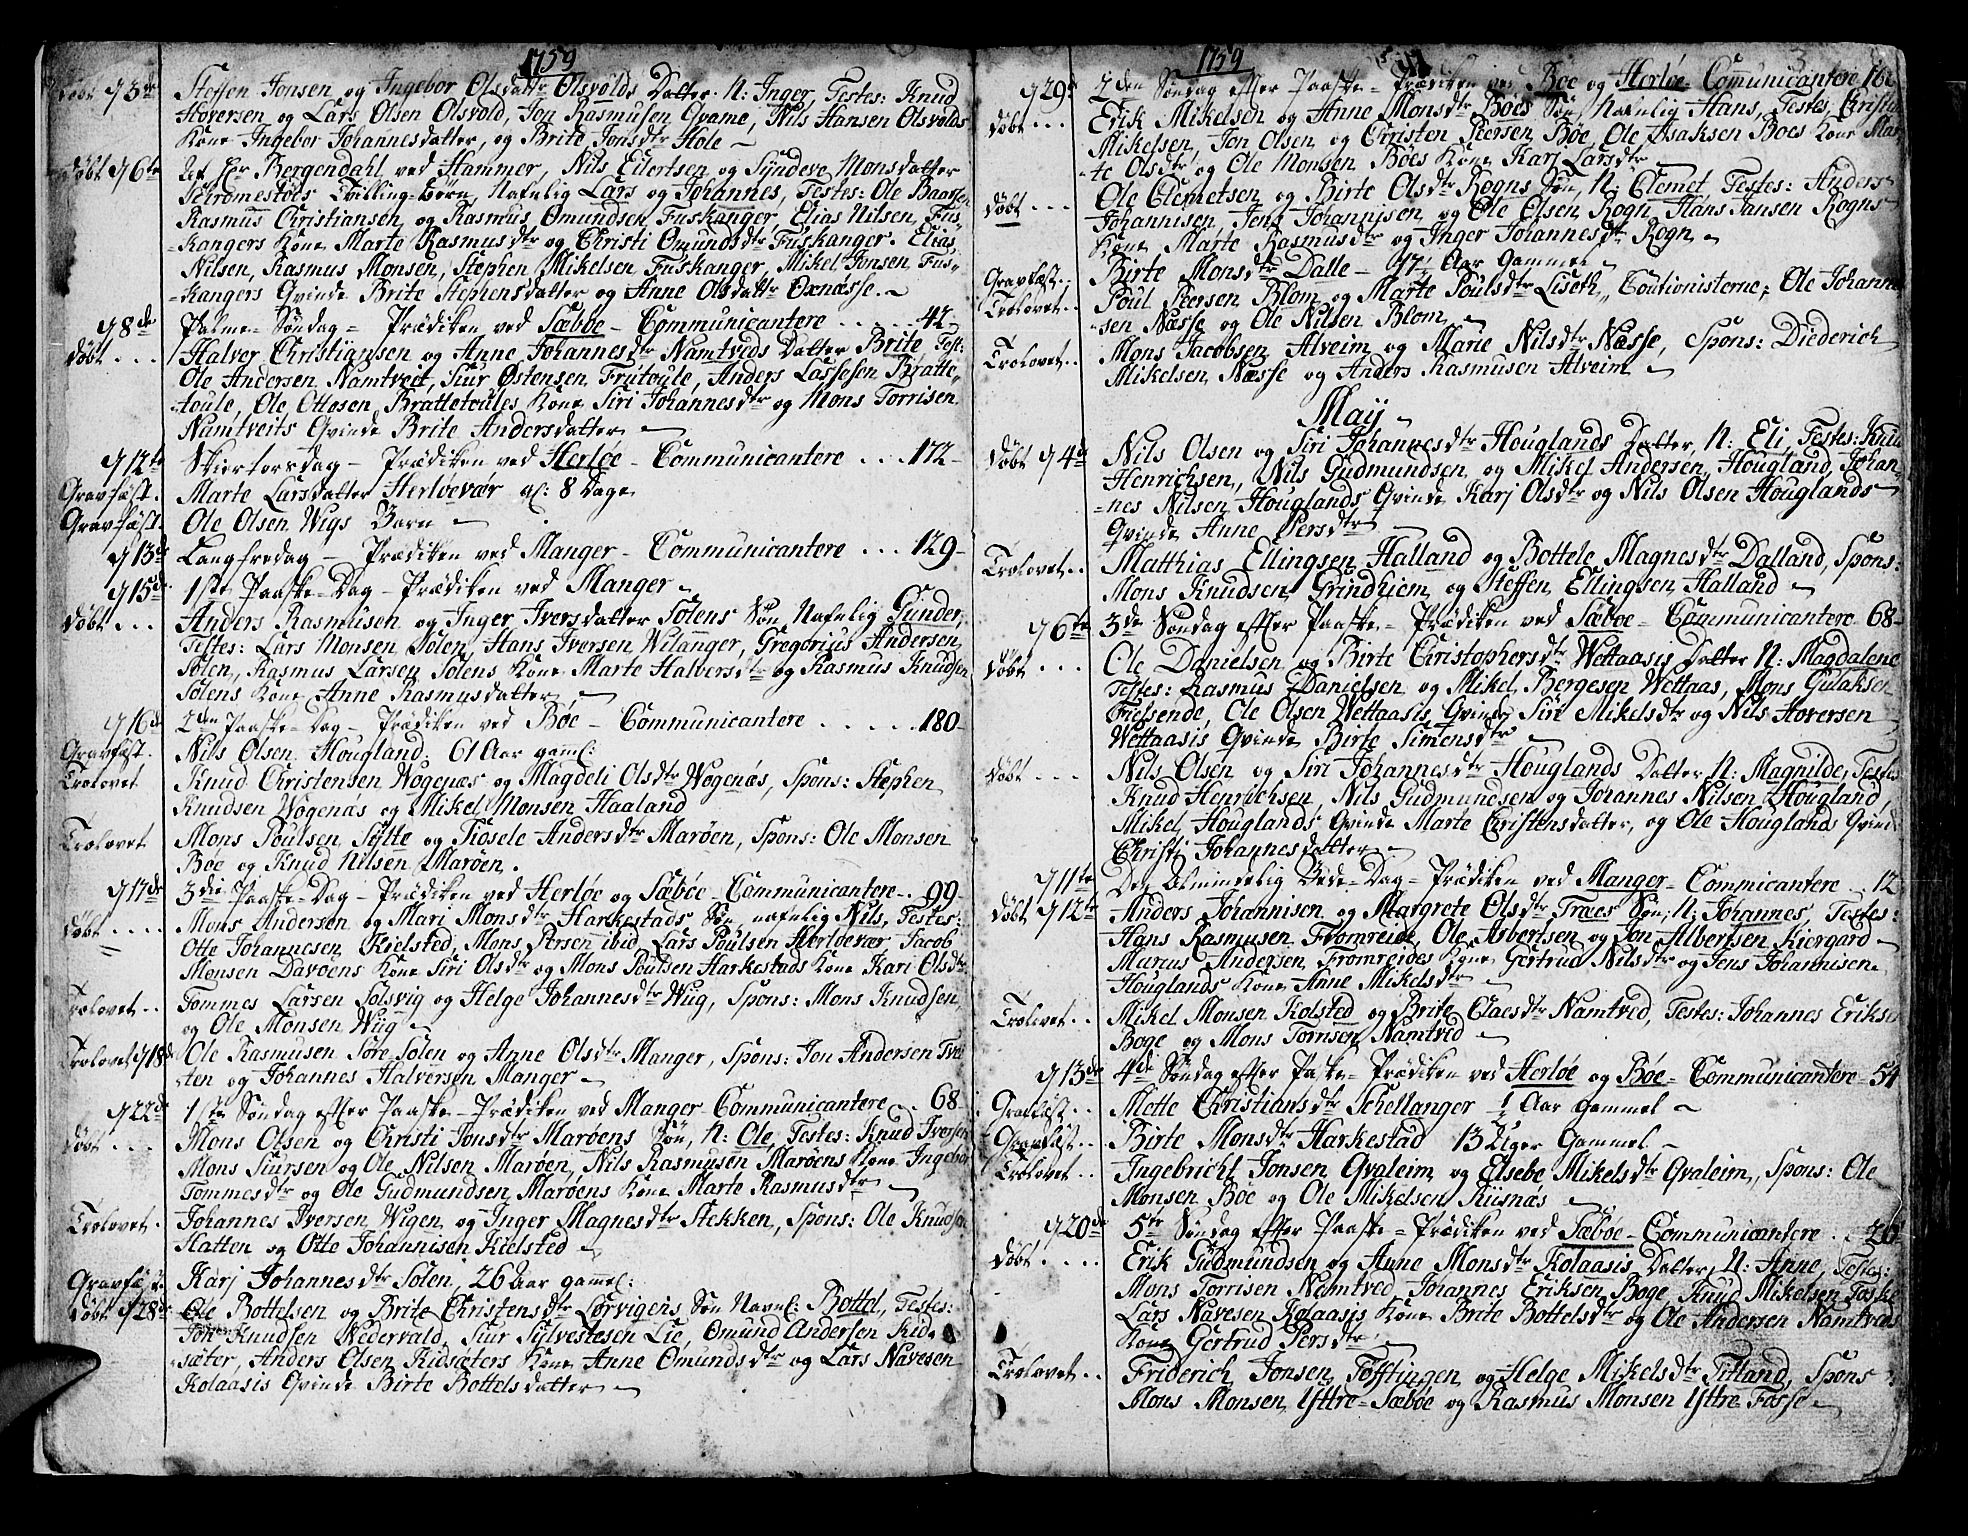 1759
Døbt d 3de Steffen Jonsen og Ingebor Olsdatr Olsvolds Datter N: Inger, Testes: Knud
Hoversen og Lars Olsen Olsvold, Jon Rasmusen Qvame, Nils Hansen Olsvolds
Kone Ingebor Johannesdatter, og Brite Jonsdtr Hole
Døbt d 6te Af Hr Bergendahl ved Hammer, Nils Eilertsen og Synneve Monsdatter
Tvilling-Børn, Nafnlig Lars og Johannes, Testes: Ole Baarsen
Rasmus Christiansen og Rasmus Omundsen Fuskanger, Elias Nilsen, Fus-
-kangers Kone Marte Rasmusdtr og Christi Omundsdtr Fuskanger. Elias
Nilsen, Rasmus Monsen, Stephen Mikelsen Fuskanger, Mikel Jonsen Fus-
-kangers Qvinde Brite Stephensdatter og Anne Olsdattr Oxnæsse.
d 8de Palme-Søndag - Prædiken ved Sæbøe - Communicantere . . . 42-
Døbt . . . Halver Christiansen og Anne Johannesdtr Namtveds Datter Brite Test:
Ole Andersen Namtveit, Siur Østensen Frutoule, Anders Lassesen Bratte-
-toule, Ole Ottosen Brattetoules Kone Siri Johannesdtr og Mons Torrisen
Namtveits Qvinde Brite Andersdatter
d 12te Skiertorsdag - Prædiken ved Herløe - Communicantere . . . 172-
Gravfæst. Marte Larsdatter Herløevær gl: 8 Dage
Gravfæst. Ole Olsen Wigs Barn
d 13de Langfredag - Prædiken ved Manger - Communicantere . . . 129-
d 15de 1ste Paaske-Dag - Prædiken ved Manger
Døbt . . . Anders Rasmusen og Inger Iversdatter Solens Søn Nafnlig Gunder,
Testes: Lars Monsen Solen, Hans Iversen Wilanger, Gregorius Andersen
Solen, Rasmus Larsen Solens Kone Marte Halversdtr og Rasmus Knudsen
Solens Kone Anne Rasmusdatter
d 16de 2den Paaske-Dag - Prædiken ved Bøe - Communicantere . . . . . 180-
Gravfæst. Nils Olsen Hougland 61 Aar gaml:
Trolovet Knud Christensen Wogenæs og Magdeli Olsdtr Wogenæs, Spons: Stephen
Knudsen Wogenæs og Mikel Monsen Haaland
Trolovet Mons Poulsen Sylte og Siosele Andersdtr Marøen, Spons: Ole Monsen
Bøe og Knud Nilsen Marøen.
d 17de 3die Paaske-Dag - Prædiken ved Herløe og Sæbøe - Communicantere - . 99
Døbt . . . . Mons Andersen og Mari Monsdtr Harkestads Søn nafnlig Nils, Testes:
Otte Johannesen Kielsted, Mons Persen ibid, Lars Poulsen Herløevær Jacob
Monsen Davøens Kone Siri Olsdtr og Mons Poulsen Harkestads Kone Kari Olsdtr
Trolovet . . Tommes Larsen Solsvig og Helge Johannesdtr Wug, Spons: Mons Knudsen,
og Ole Monsen Wiig
Trolovet d 18de Ole Rasmusen Søre-Solen og Anne Olsdtr Manger, Spons: Jon Andersen Tvæ
-ten og Johannes Halversen Manger
d 22de 1ste Søndag efter Paaske - Prædiken ved Manger - Communicantere . . 68-
Døbt . . . Mons Olsen og Christi Jonsdtr Marøens Søn, N: Ole, Testes: Knud Iversen
Mons Siursen og Ole Nilsen Marøen, Nils Rasmusen Marøens Kone Ingebor
Tommesdtr og Ole Gudmundsen Marøens Kone Marte Rasmusdtr
Trolovet. Johannes Iversen Wigen og Inger Magnesdtr Stekken, Spons: Ole Knudsen
Hatten og Otte Johannisen Kielsted
Gravfæst Karj Johannesdtr Solen, 26 Aar gamel:
Døbt d 28de Ole Bottelsen og Brite Christensdtr Lorvigens Søn Navnl: Bottel, Testes:
Jon Knudsen Nedervald, Siur Sylvestesen Lie, Omund Andersen Kid-
-sæter, Anders Olsen Kidsæters Kone Anne Omundsdtr og Lars Navesen
Kolaasis Qvinde Birte Bottelsdatter
1759
3
d 29de 2den Søndag efter Paaske - Prædiken ved Bøe og Herløe - Communicantere 160
Døbt . . . Erik Mikelsen og Anne Monsdtr Boes Søn, Nafnlig Hans, Testes, Christen
Mikelsen, Jon Olsen og Christen Persen Bøe, Ole Isaksen Boes Kone Mar-
-te Olsdtr og Ole Monsen Bøes Kone Karj Larsdtr
Døbt . . . Ole Clemetsen og Birte Olsdtr Rogns Søn, N: Clemet Testes: Anders
Johannisen, Jens Johannisen og Ole Olsen Rogn, Hans Jansen Rogns
Kone Marte Rasmusdtr og Inger Johannesdtr Rogn
Gravfæst. Birte Monsdtr Dalle - 47 Aar Gammel
Trolovet. . Poul Persen Blom og Marte Poulsdtr Liseth, Cautionisterne, Ole Johanni
-sen Næsse og Ole Nilsen Blom
Trolovet. . Mons Jacobsen Alveim og Marie Nilsdtr Næsse, Spons: Diederich
Mikelsen Næsse og Anders Rasmusen Alveim
Maij
Døbt d 4de Nils Olsen og Siri Johannesdtr Houglands Datter, N: Eli, Testes: Knud
Henrichsen, Nils Gudmundsen og Mikel Andersen Hougland, Johan-
-nes Nilsen Houglands Qvinde Karj Olsdtr og Nils Olsen Houglands
Qvinde Anne Persdtr
Trolovet. . Matthias Ellingsen Halland og Bottele Magnesdtr Dalland, Spons:
Mons Knudsen Grindhiem og Steffen Ellingsen Halland
d 6te 3de Søndag efter Paaske - Prædiken ved Sæbøe - Communicantere 68-
Døbt . . . Ole Danielsen og Birte Christophersdtr Wettaasis Datter N: Magdalene
Testes: Rasmus Danielsen og Mikel Bergesen Wettaas, Mons Gulaksen
Fussende, Ole Olsen Wettaasis Qvinde Siri Mikelsdtr og Nils Hoversen
Wettaasis Qvinde Birte Simensdtr
Døbt . . . Nils Olsen og Siri Johannesdtr Houglands Datter N: Magnilde, Testes
Knud Henrichsen, Nils Gudmundsen og Johannes Nilsen Hougland,
Mikel Houglands Qvinde Marte Christensdatter, og Ole Houglands Qvinde
Christj Johannesdatter
d 11te Den Almindelig Bede-Dag - Prædiken ved Manger - Commicantere - 12
Døbt d 12te Anders Johannisen og Margrete Olsdtr Træes Søn, N: Johannes, Testes:
Hans Rasmusen Fromreide, Ole Asbertsen og Jon Albertsen Kiergard
Marus Andersen Fromreides Kone Gertrud Nilsdtr og Jens Johannisen
Houglands Kone Anne Mikelsdtr
Trolovet. . Mikel Monsen Kolsted og Brite Claesdtr Namtved, Testes: Johannes Eriksen
Boge og Mons Torrisen Namtved
d 13de 4de Søndag efter Paske - Prædiken ved Herløe og Bøe - Communicantere - 54
Gravfæst . . Mette Christiansdtr Schellanger 1/2 Aar Gammel
Gravfæst . . Birte Monsdtr Harkestad 13 Uger Gammel
Trolovet . . Ingebricht Jonsen Qvaleim og Elsebe Mikelsdtr Qvaleim, Spons: Ole
Monsen Bøe og Ole Mikelsen Riisnæs
d 20de 5te Søndag efter Paaske - Prædiken ved Sæbøe - Communicantere . 26
Døbt . . . . Erik Gudmundsen og Anne Monsdtr Kolaasis Datter, N: Anne, Testes:
Mons Torrisen Namtved Johannes Eriksen Boge, Knud Mikelsen Foske
Lars Navesen Kolaasis Kone Brite Bottelsdtr og Ole Andersen Namtveds
Kone Gertrud Persdtr
Trolovet . . Friderich Jonsen Tofftingen og Helge Mikelsdtr Titland, Spons
Mons Monsen Yttre-Sæbøe og Rasmus Monsen Yttre Fosse